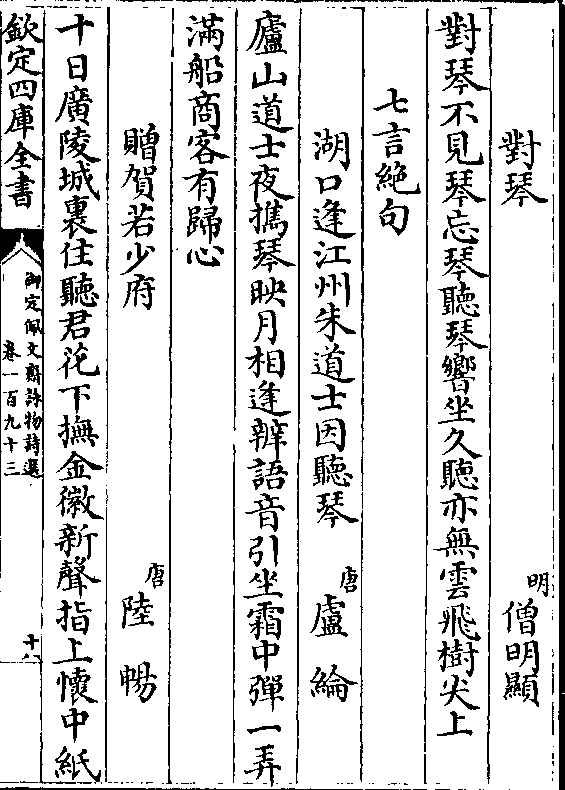 對琴 明 僧明顯
對琴不見琴忘琴聽琴響坐久聽亦無雲飛樹尖上
七言絶句
湖口逢江州朱道士因聽琴 唐 盧綸
廬山道士夜攜琴映月相逢辨語音引坐霜中彈一弄
滿船商客有歸心
贈賀若少府 唐 陸暢
十日廣陵城裏住聽君花下撫金徽新聲指上懷中紙
欽定四庫全書
御定佩文齋詠物詩選
卷一百九十三
十八